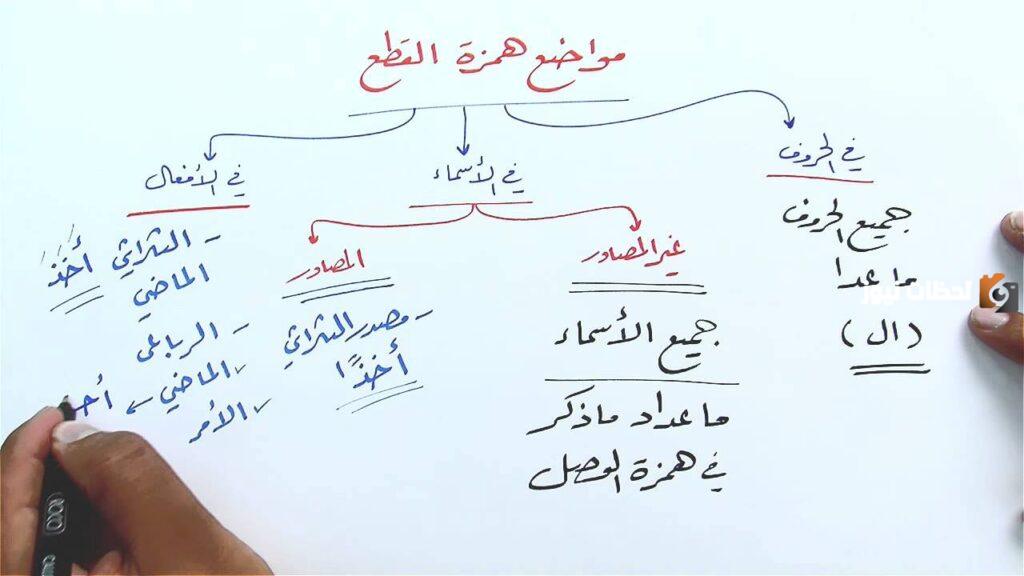 مواضع همزة القطع
في الحروف
جميع الحروف
ما عدا
(ال)
في الأسماء
غير المصادر
جميع الأسماء
ما عداد ما ذكر
في همزة الوصل
المصادر
- مصدر الثلاثي
أخذًا
في الأفعال
- الثلاثي أَخَذَ
الماضي
- الرباعي
الماضي ← أحـ
الأمر
لحظات نيوز